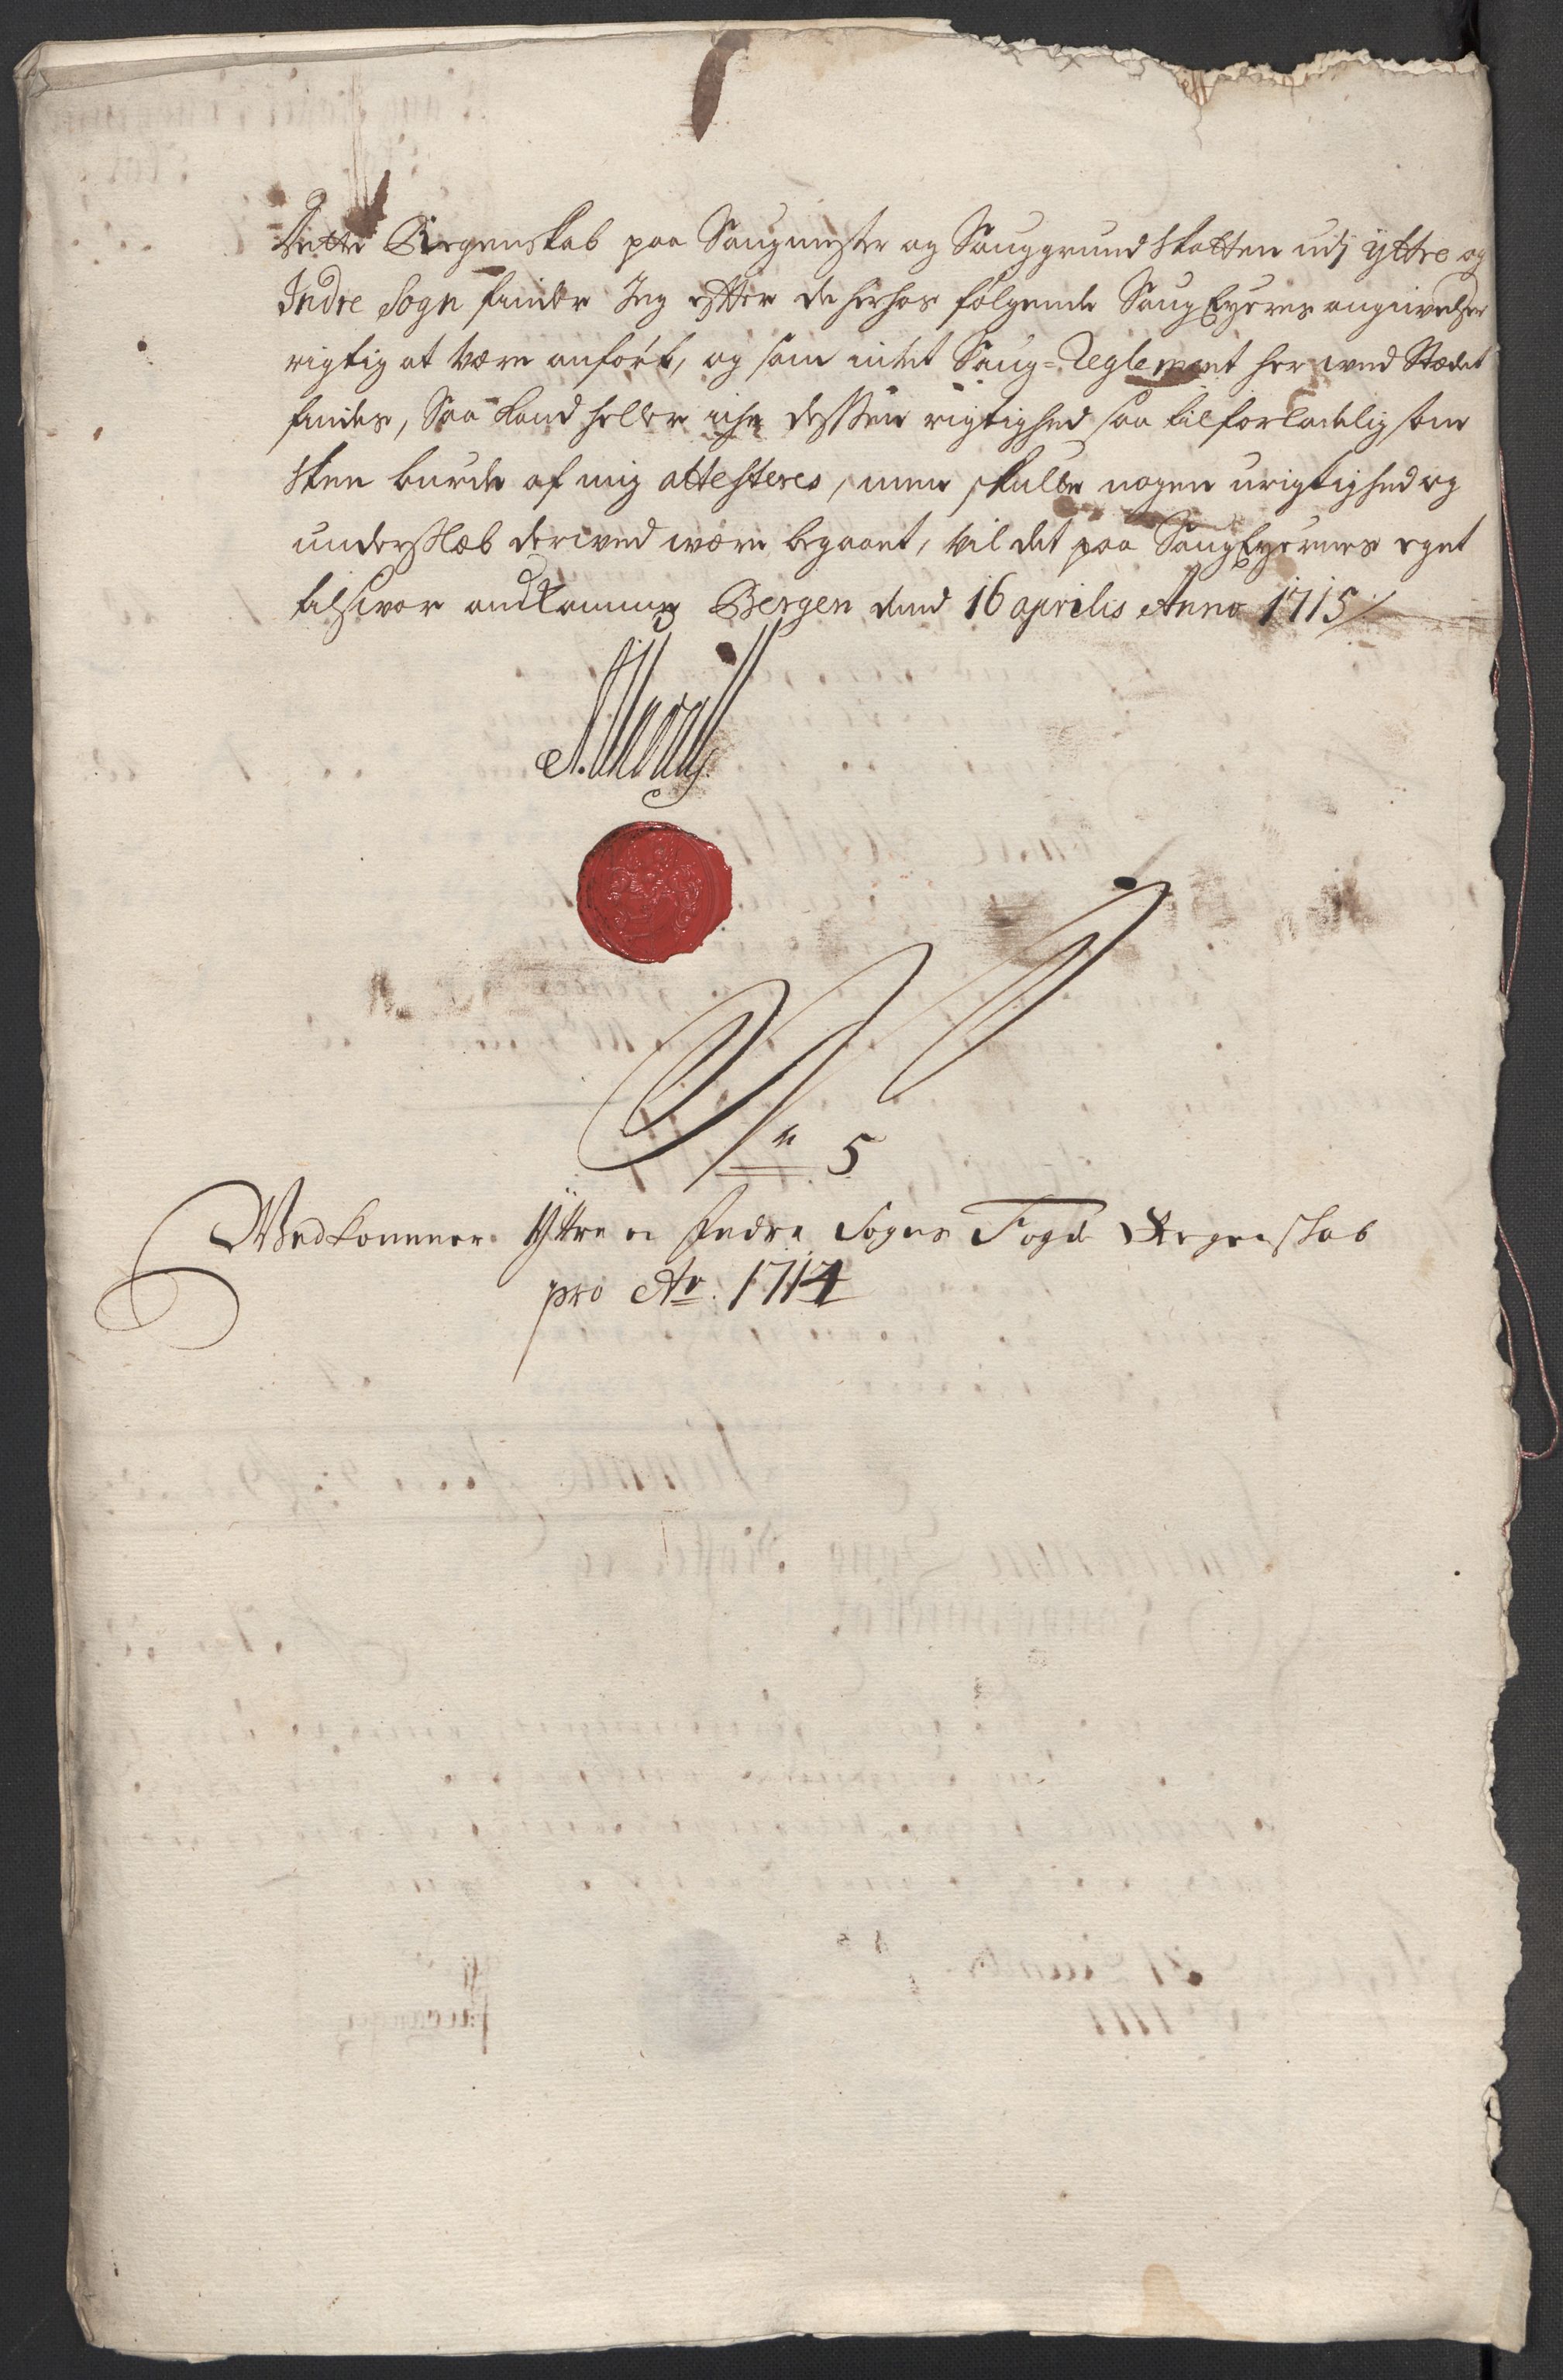 Dette Regenskab paa Saugmester og Sauggrundskatten udj Yttre og
Indre Sogn finder Jeg efter de herhos følgende Saug Eyeres angivelser
rigtig at være anført, og som intet Saug=Reglement her ved Stædet
findes, Saa kand heller iche dessen rigtighed saa tilforladelig som
skee burde af mig attesteres, men skulle nogen urigtighed og
underslæb derved være begaaet, vil det paa Saug Eyernes eget
tilsvar ankomme Bergen dend 16 aprilis Anno 1715/
No 5
Vedkommer Yttre oc Indre Sogns Fogd Regenskab
pro Ao. 1714